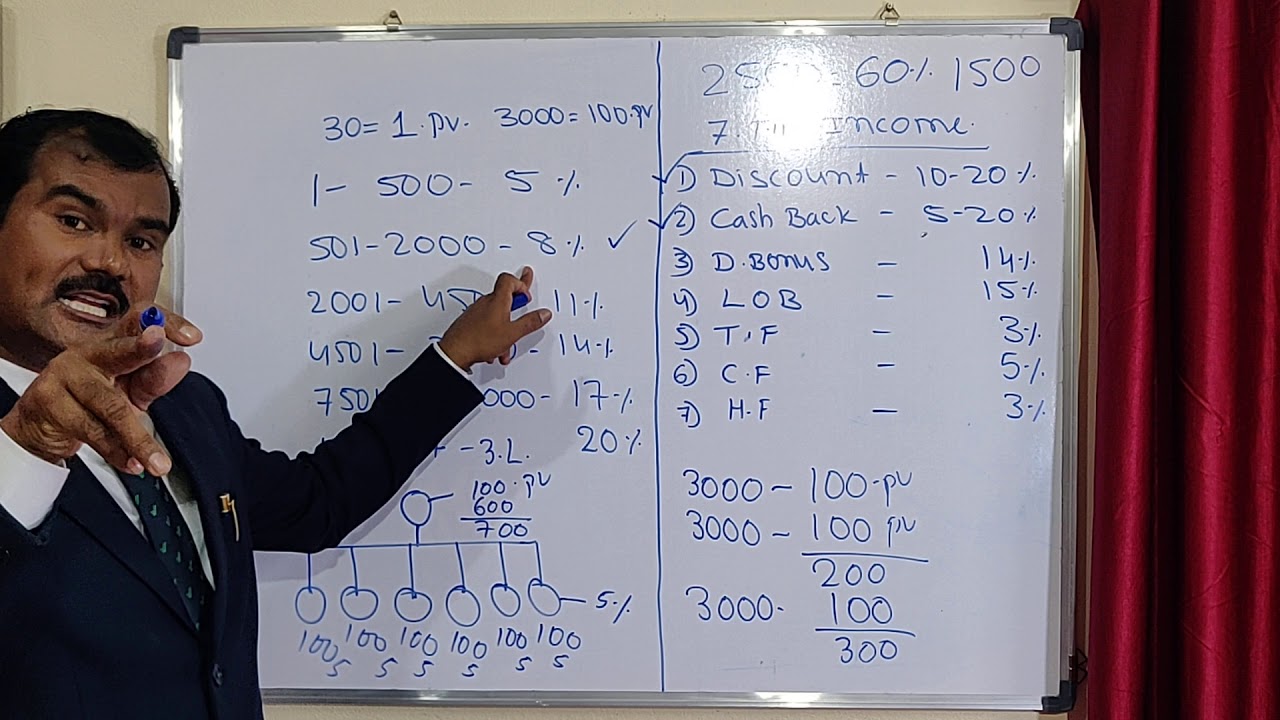 30 = 1.pv. 3000 = 100.pv
1 - 500 - 5 %
501 - 2000 - 8 % ✓
2001 - 11 %
4501 - - 14 %
- 17 %
- 3.L. 20 %
100.pv
600
700
5 %
100 100 100 100 100 100
5 5 5 5 5 5
60 % 1500
7. Income.
✓ 1) Discount - 10-20 %
✓ 2) Cash Back - 5-20 %
3) D.Bonus - 14 %
4) LOB - 15 %
5) T.F - 3 %
6) C.F - 5 %
7) H.F - 3 %
3000 - 100.pv
3000 - 100 pv
200
3000. 100
300